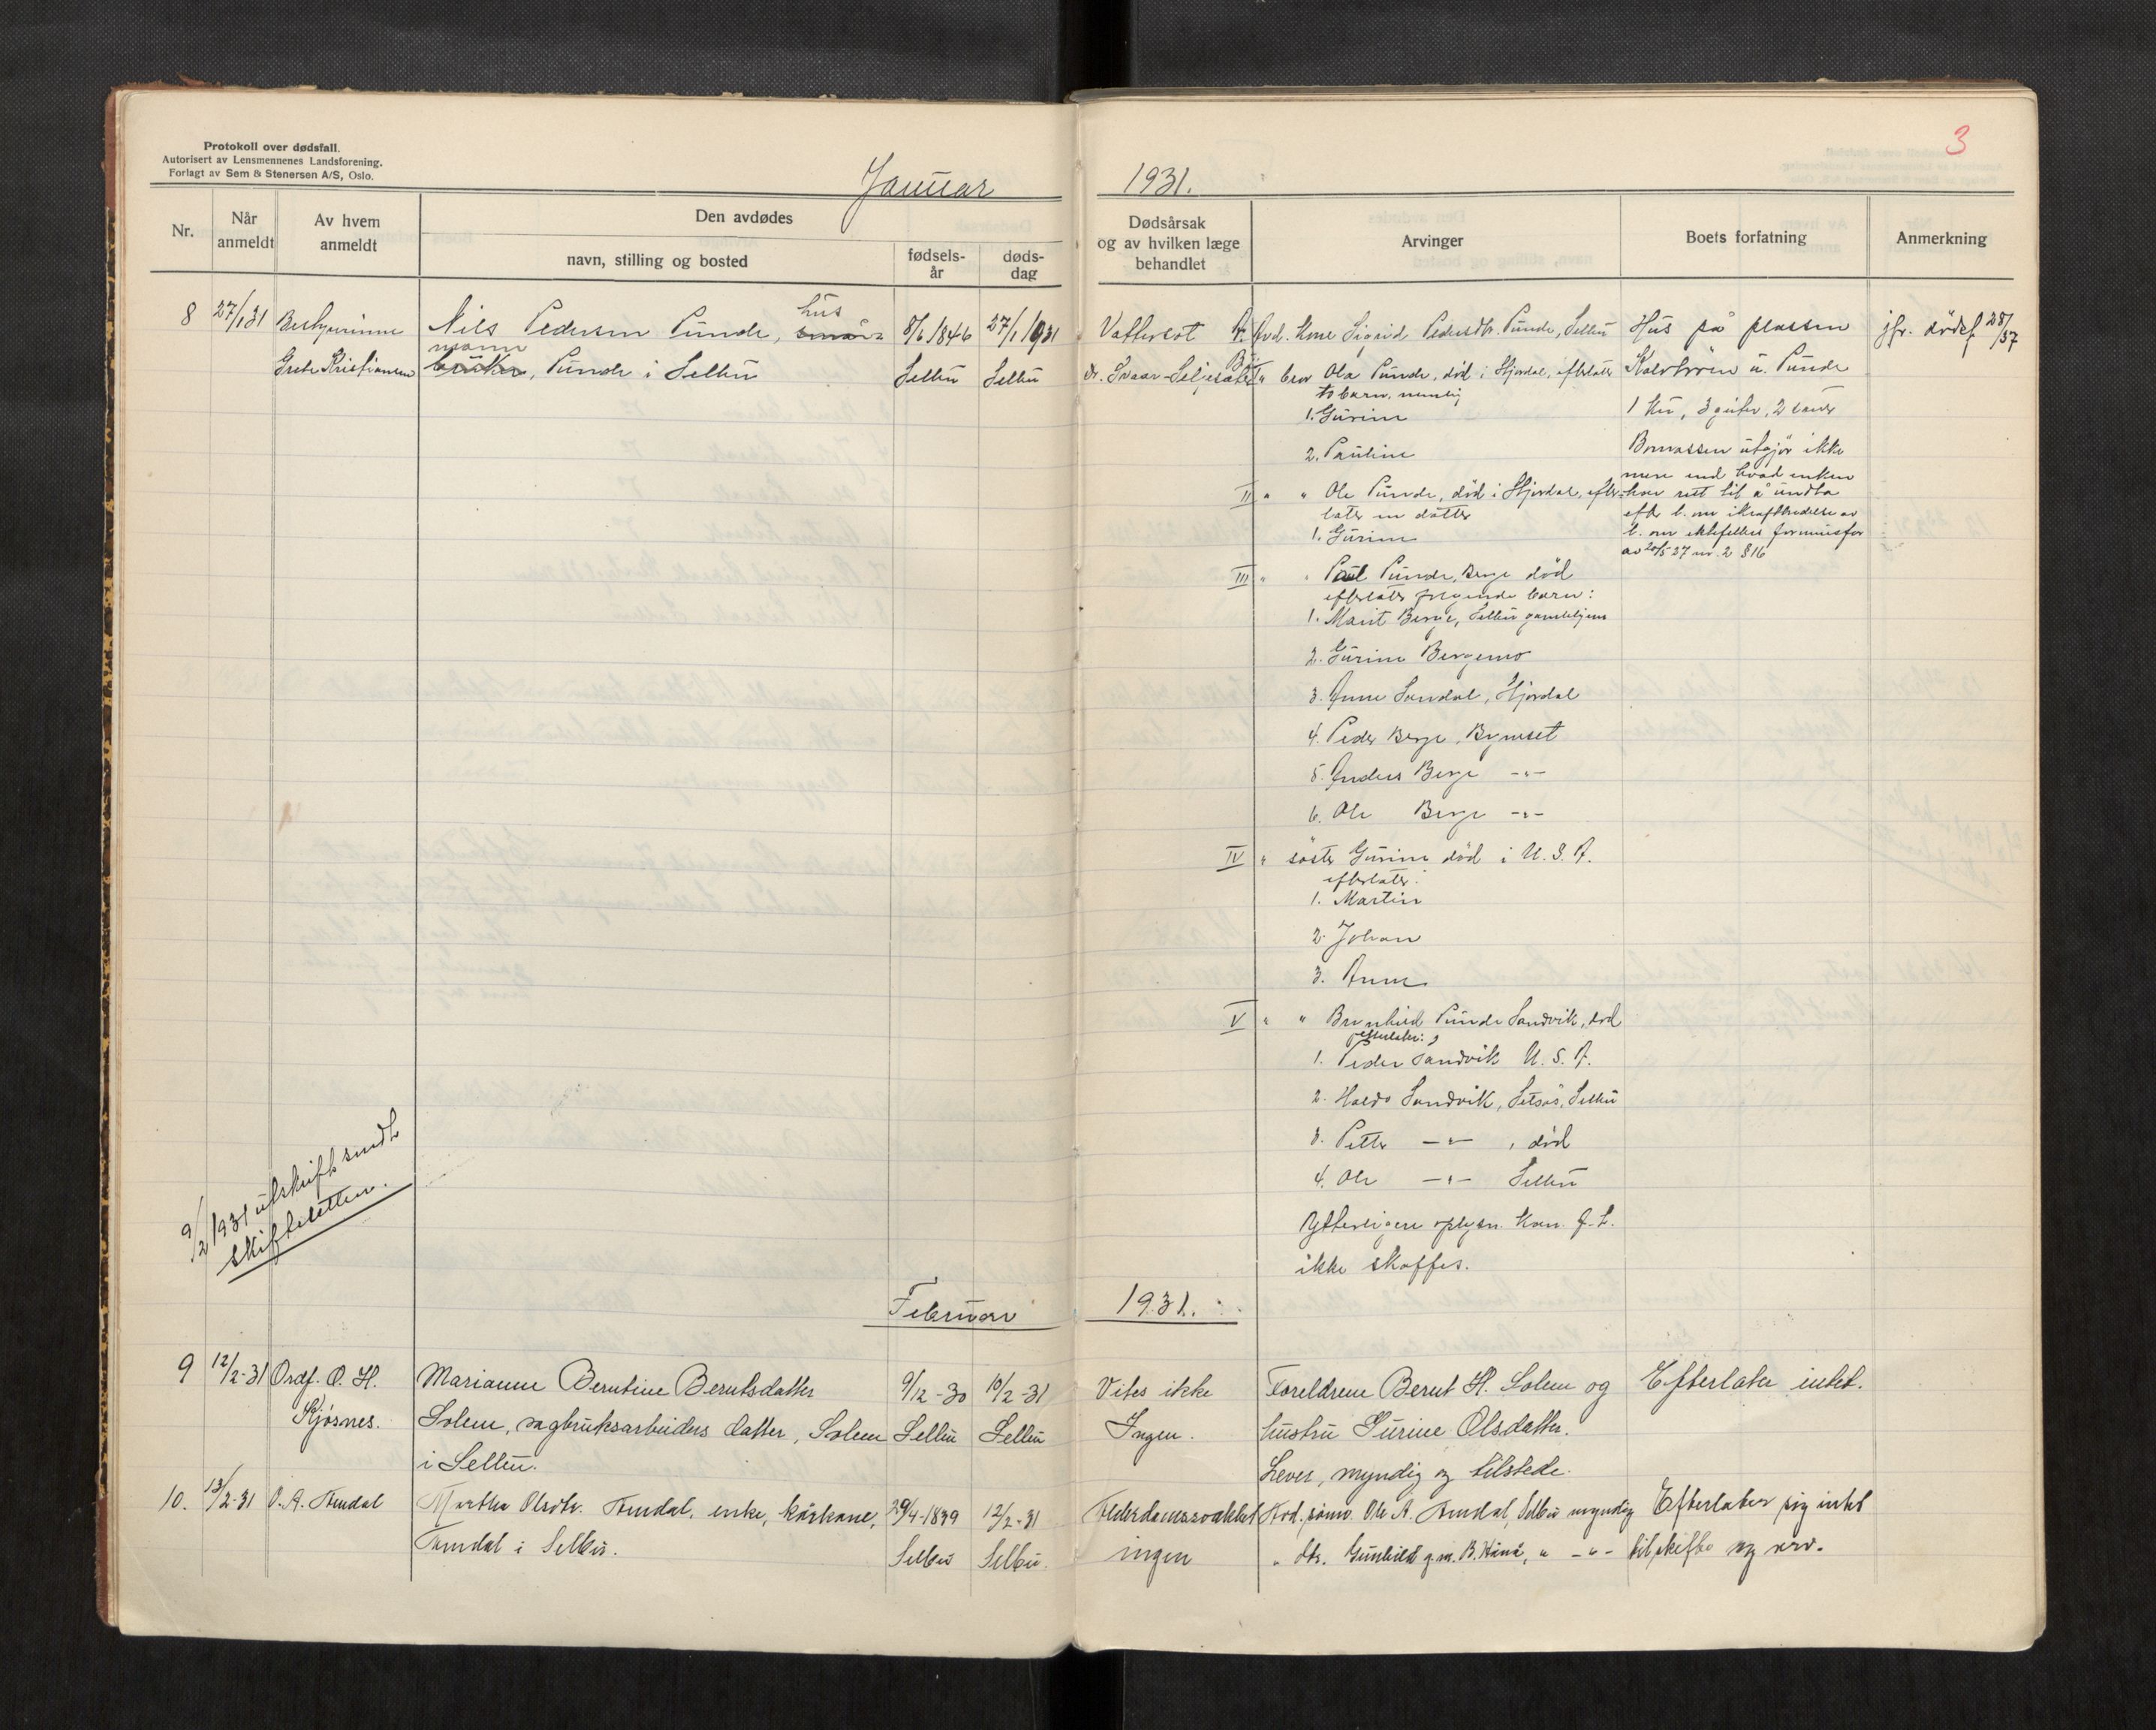 Protokoll over dødsfall.
Autorisert av Lensmennenes Landsforening.
Forlagt av Sem & Stenersen A/S, Oslo.
Januar 1931.
3
Nr.
Når anmeldt
Av hvem anmeldt
Den avdødes
navn, stilling og bosted
fødsels-år
døds-dag
Dødsårsak og av hvilken læge behandlet
Arvinger
Boets forfatning
Anmerkning
8 27/1 31 Bestyrerinne
Grete Kristiansen
Nils Pedersen Punde, små- hus
bruker mann, Punde i Selbu
8/6 1846
Selbu
27/1 1931
Selbu
Vattersot
dr. Svaar-Seljesæter
A. Avd. kone Sigrid Pedersdtr. Punde, Selbu
B. I " bror Ola Punde, død i Stjørdal, efterlater
to barn, nemlig
1. Gurine
2. Pauline
II " " Ole Punde, død i Stjørdal, efter-
later en datter
1. Gurine
III " " Paul Punde, Berge død
efterlater følgende barn:
1. Marit Berge, Selbu gamlehjem
2. Gurine Bergemo
3. Anne Sandal, Stjørdal
4. Peder Berge, Byneset
5. Anders Berge -"-
6. Ole Berge -"-
IV " søster Gurine død i U.S.A.
efterlater:
1. Martin
2. Johan
3. Anne
V " " Brynhild Punde Sandvik, død
efterlater:
1. Peder Sandvik U.S.A.
2. Haldo Sandvik, Setsås, Selbu
3. Petter -"- , død
4. Ole -"- Selbu
Ytterligere oplysn. kan f.t.
ikke skaffes.
Hus på plassen
Kalvbrøen u. Punde
1 ku, 3 geiter, 2 sauer
Bomassen utgjør ikke
mere end hvad enken
har rett til å undta
efter l. om ikrafttredelse av
l. om ektefellers formuesfor
av 20/5-27 nr. 2 § 16
jfr. dødsf 28/37
9/2 1931 utskrift sendt
skifteretten.
Februar 1931.
9 12/2-31 Ordf. O. H.
Kjøsnes.
Marianne Berntine Berntsdatter
Solem, sagbruksarbeiders datter, Solem
i Selbu.
9/12-30
Selbu
10/2-31
Selbu
Vites ikke
Ingen.
Foreldrene Bernt H. Solem og
hustru Gurine Olsdatter.
Lever, myndig og tilstede.
Efterlater intet.
10. 13/2-31 O. A. Amdal
Martha Olsdtr. Amdal, enke, kårkone,
Amdal i Selbu.
29/4-1839
Selbu
12/2-31
Selbu.
Alderdomssvakhet
ingen
Avd. sønn Ole A. Amdal, Selbu myndig
" dtr. Gunhild g.m. B. Kånå, " -"-
Efterlater sig intet
til skifte og arv.